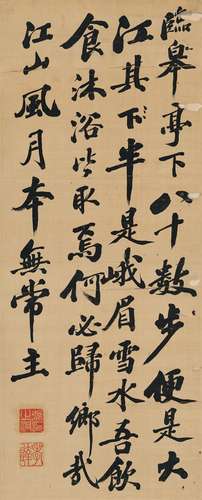 臨皋亭下八十數步便是大
江其下半是峨眉雪水吾飲
食沐浴皆取焉何必歸鄉哉
江山風月本無常主